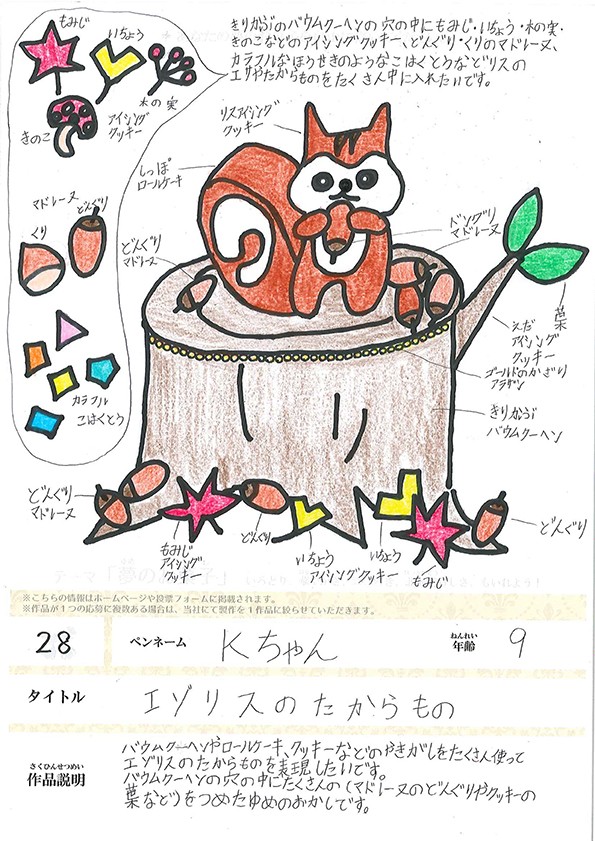 きりかぶのバウムクーヘンの穴の中にもみじ・いちょう・木の実・
きのこなどのアイシングクッキー、どんぐり・くりのマドレーヌ、
カラフルなほうせきのようなこはくとうなどリスの
エサやたからものをたくさん中に入れたいです。
もみじ
いちょう
木の実
きのこ
アイシング
クッキー
マドレーヌ
どんぐり
くり
カラフル
こはくとう
リスアイシング
クッキー
しっぽ
ロールケーキ
どんぐり
マドレーヌ
ドングリ
マドレーヌ
葉
えだ
アイシング
クッキー
ゴールドのかざり
アラザン
きりかぶ
バウムクーヘン
どんぐり
マドレーヌ
もみじ
アイシング
クッキー
どんぐり
いちょう
アイシングクッキー
いちょう
もみじ
どんぐり
※こちらの情報はホームページや投票フォームに掲載されます。
※作品が1つの応募に複数ある場合は、当社にて製作を1作品に絞らせていただきます。
28 ペンネーム Kちゃん ねんれい 年齢 9
タイトル エゾリスのたからもの
さくひんせつめい
作品説明
バウムクーヘンやロールケーキ、クッキーなどのやきがしをたくさん使って
エゾリスのたからものを表現したいです。
バウムクーヘンの穴の中にたくさんの(マドレーヌのどんぐりやクッキーの
葉など)をつめたゆめのおかしです。